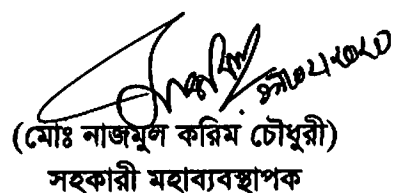 (মোঃ নাজমুল করিম চৌধুরী)
সহকারী মহাব্যবস্থাপক